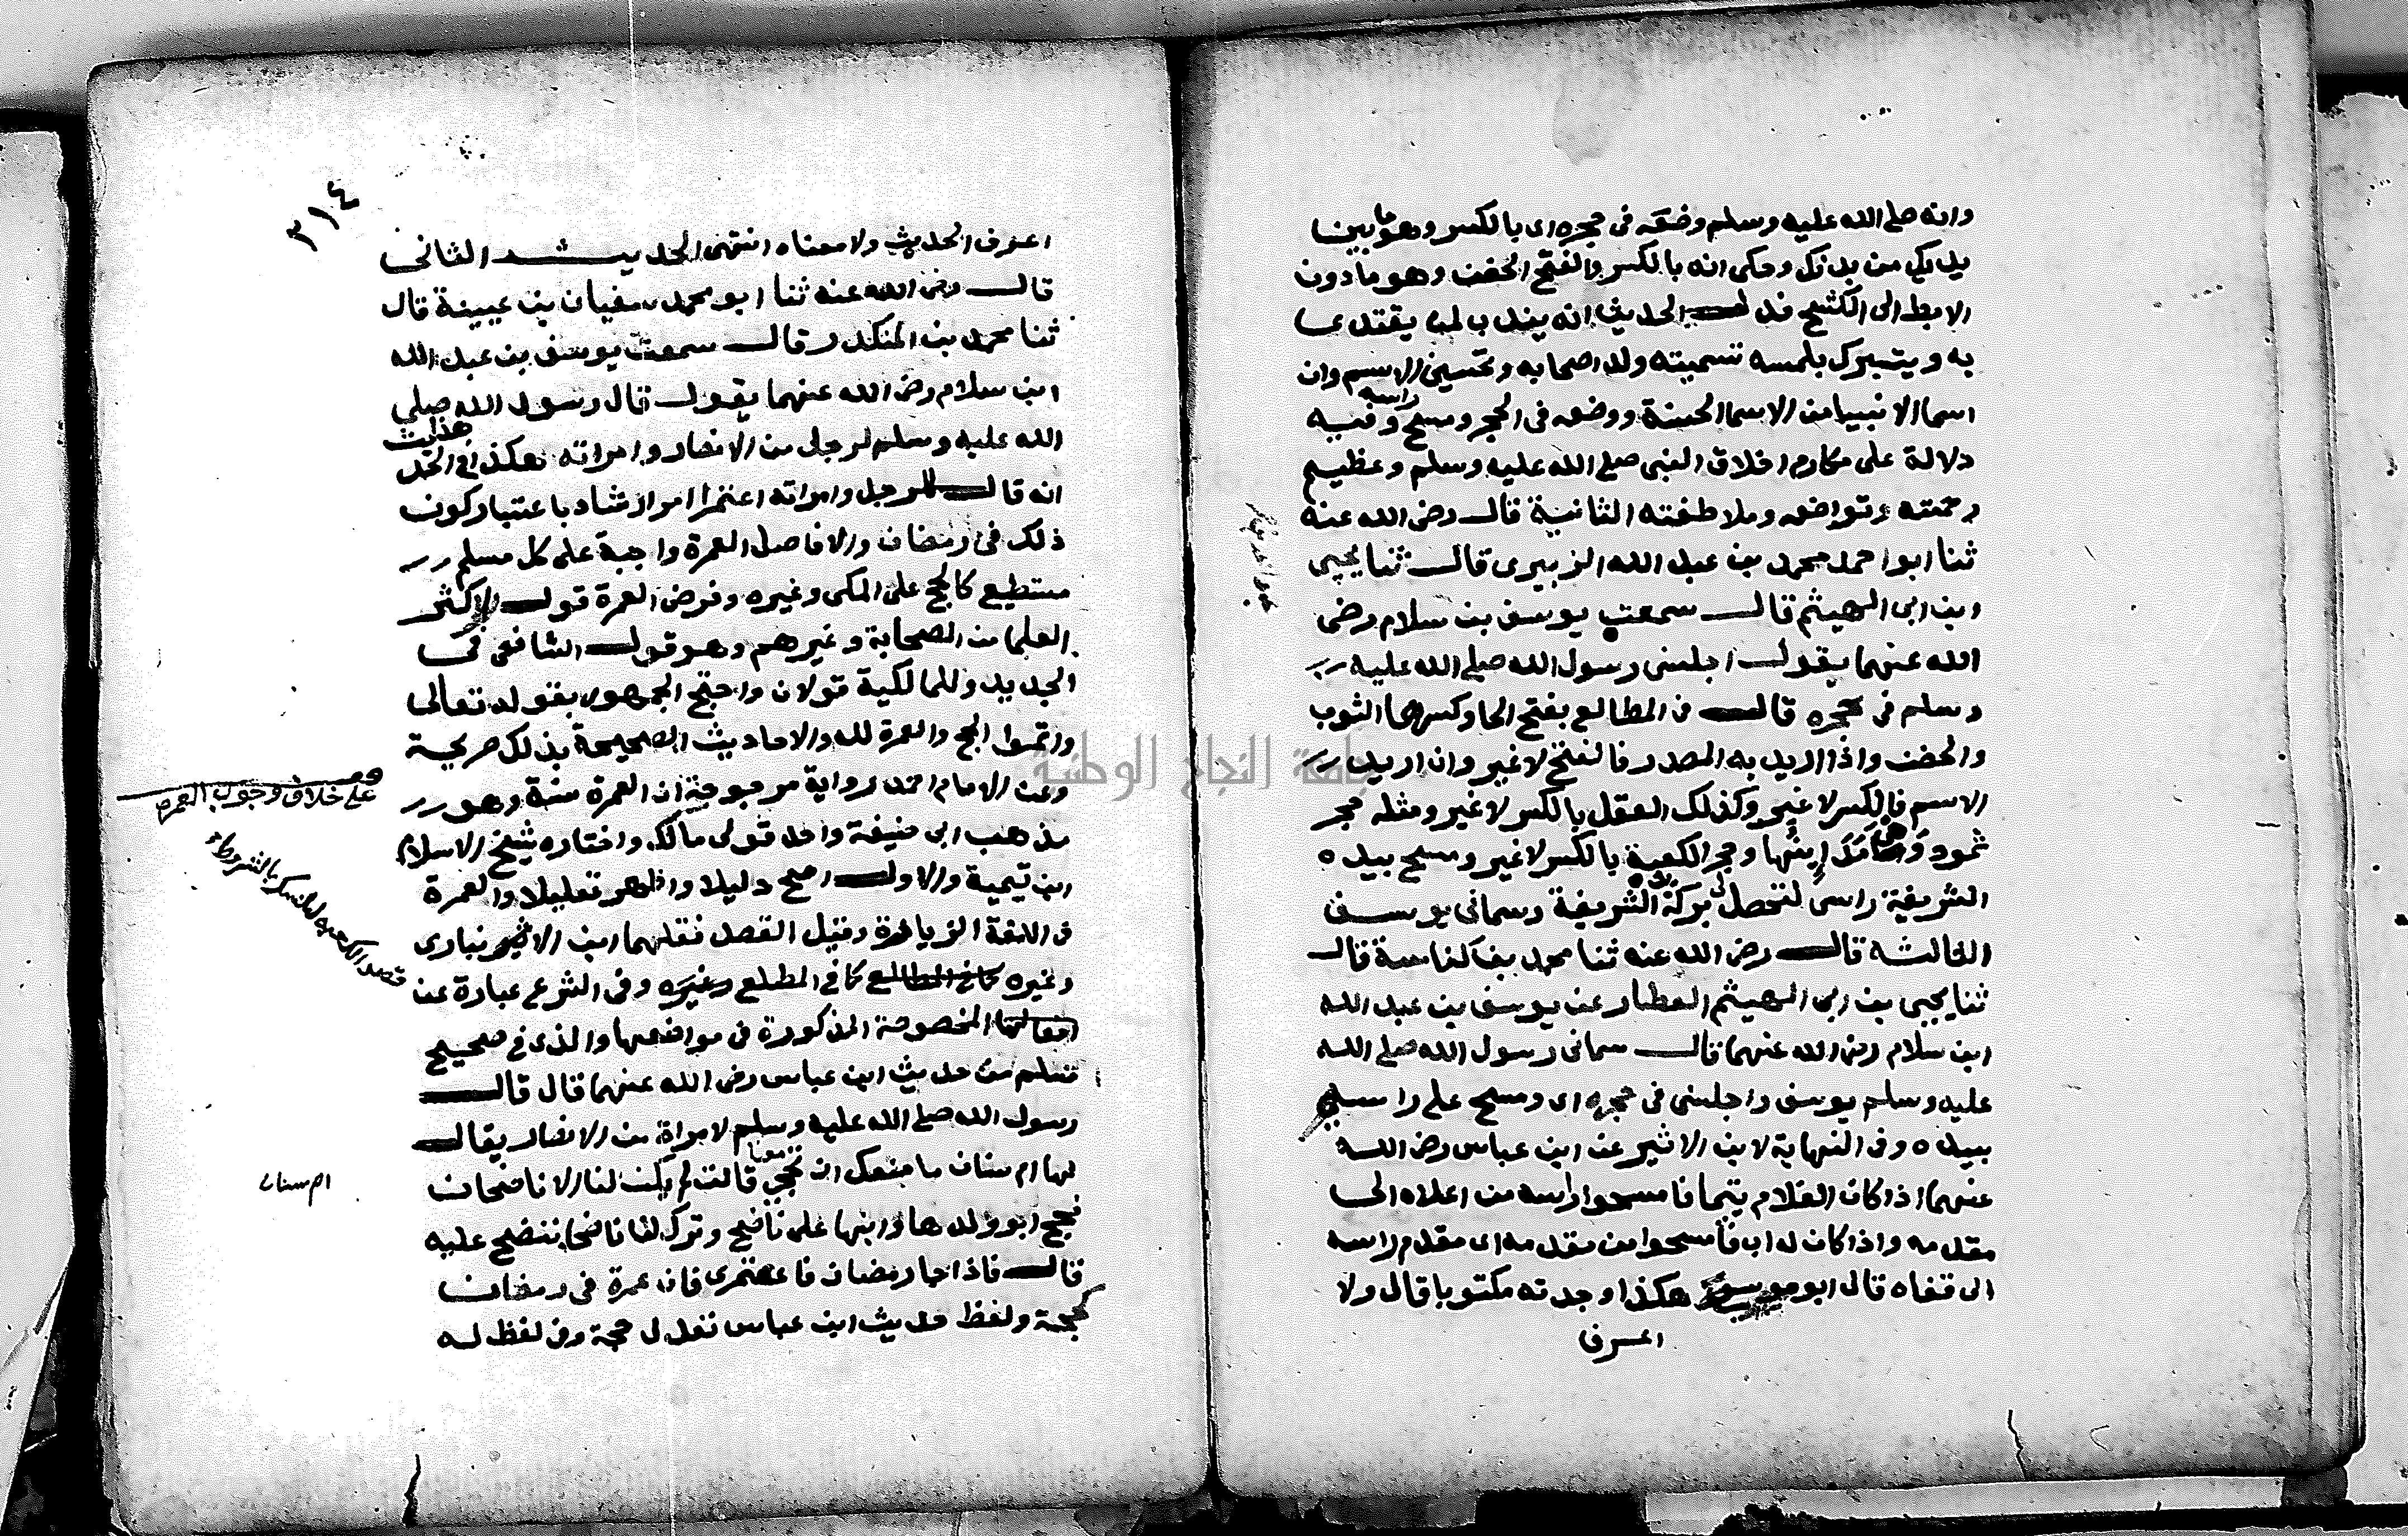 وانه صلى الله عليه وسلم وضعه في حجره اي بالكسر وهو ما بين
يديك من بدنك وحكى انه بالكسر والفتح الحضن وهو مادون
الابط الى الكشح فدل الحديث انه يندب لمن يقتدى
به ويتبرك بلمسه تسميته ولد اصحابه وتحسين الاسم وان
اسما الانبيا من الاسما الحسنة ووضعه في الحجر ومسح راسه وفيه
دلالة على مكارم اخلاق النبي صلى الله عليه وسلم وعظيم
رحمته وتواضعه وملاطفته الثانية قال رضى الله عنه
ثنا ابو احمد محمد بن عبد الله الزبيرى قال ثنا يحيى
ابن ابي الهيثم قال سمعت يوسف بن سلام رضى
الله عنهما يقول اجلسنى رسول الله صلى الله عليه
وسلم في حجره قال في المطالع بفتح الحا وكسرها الثوب
والحضن واذا اريد به المصدر فالفتح لاغير وان اريد
الاسم فالكسر لا غير وكذلك العقل بالكسر لا غير ومثله حجر
ثمود وحجر الكعبة بالكسر لاغير ومسح بيده
الشريفة راسى لتحصل لي بركة يده الشريفة وسمانى يوسف
الثالثة قال رضى الله عنه ثنا محمد بن كناسة قال
ثنا يحيى بن ابى الهيثم العطار عن يوسف بن عبد الله
ابن سلام رضى الله عنهما قال سمانى رسول الله صلى الله
عليه وسلم يوسف واجلسنى في حجره اى ومسح على راسى
بيده وفى النهاية لابن الاثير عن ابن عباس رضى الله
عنهما اذا كان الغلام يتيما فامسحوا راسه من اعلاه الى
مقدمه واذا كان له اب فامسحوا من مقدمه اى مقدم راسه
الى قفاه قال ابو موسى هكذا وجدته مكتوبا قال ولا
اعرف
٣١٤
اعرف الحديث ولا معناه انتهى الحديث الثانى
قال رضى الله عنه ثنا ابو محمد سفيان بن عيينة قال
ثنا محمد بن المنكدر قال سمعت يوسف بن عبد الله
ابن سلام رضى الله عنهما يقول قال رسول الله صلى
الله عليه وسلم لرجل من الانصار وامراته هكذا في الحديث
انه قال للرجل وامراته اعتمرا امر ارشاد باعتبار كون
ذلك في رمضان والا فاصل العمرة واجبة على كل مسلم
مستطيع كالحج على المكى وغيره وفرض العمرة قول الاكثر
العلما من الصحابة وغيرهم وهو قول الشافعى في
الجديد وللمالكية قولان واحتج الجمهور بقوله تعالى
واتموا الحج والعمرة لله والاحاديث الصحيحة بذلك صريحة
وعن الامام احمد رواية مرجوحة ان العمرة سنة وهو
مذهب ابى حنيفة واحد قولى مالك واختاره شيخ الاسلام
ابن تيمية والاول اصح دليلا واظهر تعليلا والعمرة
في اللغة الزيارة وقيل القصد نقلهما ابن الانبارى
وغيره كما في المطلع وفى الشرع عبارة عن
افعالها المخصوصة المذكورة في مواضعها والذى في صحيح
مسلم من حديث ابن عباس رضى الله عنهما قال قال
رسول الله صلى الله عليه وسلم لامراة من الانصار يقال
لها ام سنان ما منعك ان تحجي معنا قالت لم يكن لنا الا ناضحان
فحج ابو ولدها وابنها على ناضح وترك لنا ناضحا ننضح عليه
قال فاذا جا رمضان فاعتمرى فان عمرة في رمضان
كحجة ولفظ حديث ابن عباس تعدل حجة وفى لفظ له
قف
على خلاف وجوب العمرة
ام سنان
جامعة النجاح الوطنية